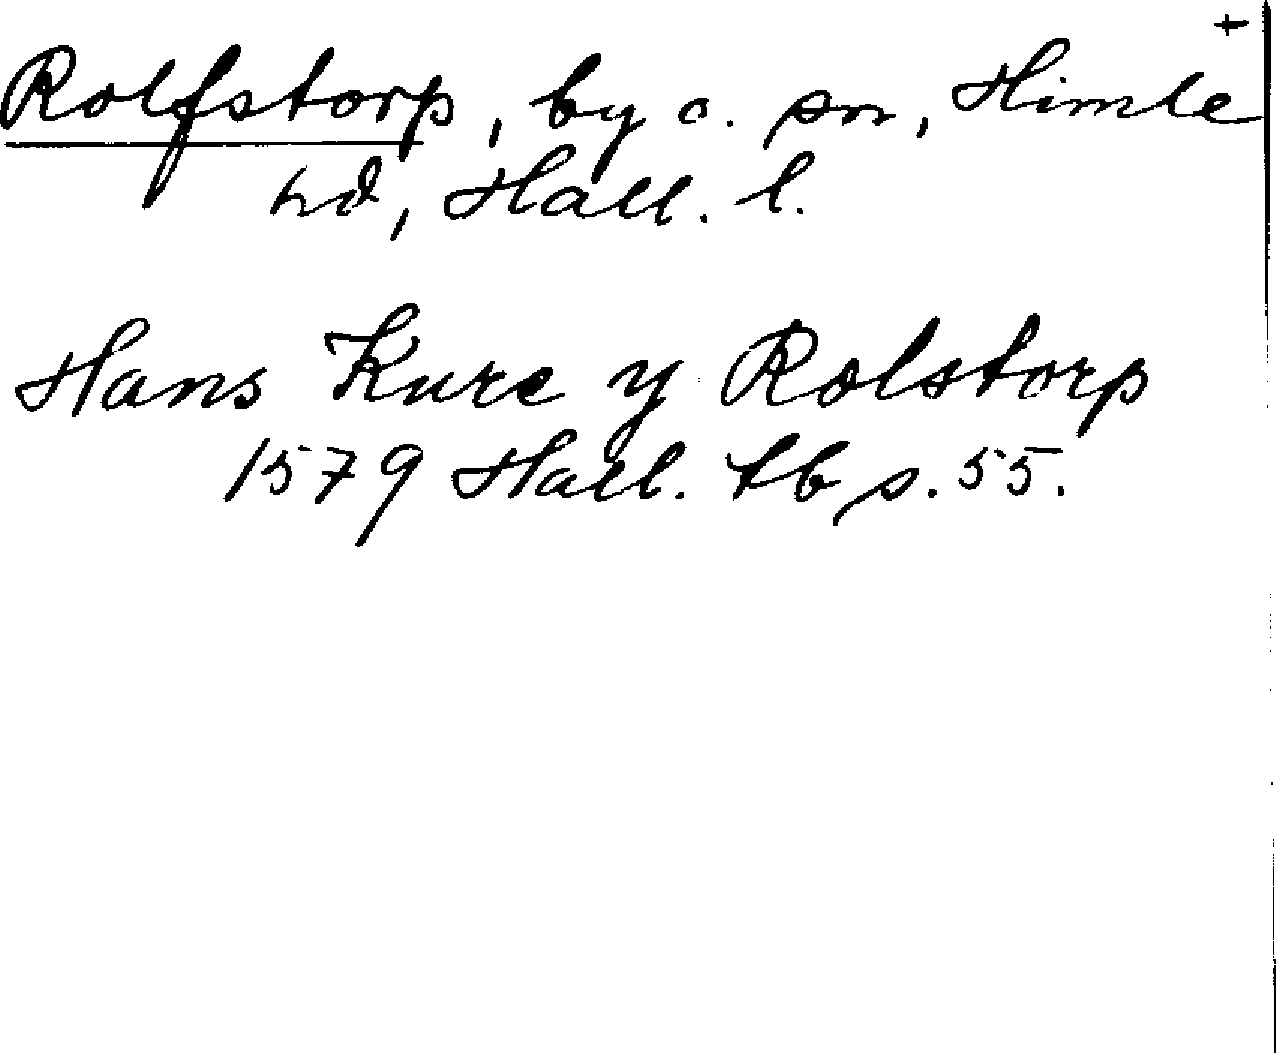 +
Rolfstorp, by o. sn, Himle
hd, Hall. l.
Hans Kure y Rolstorp
1579 Hall. tb s. 55.